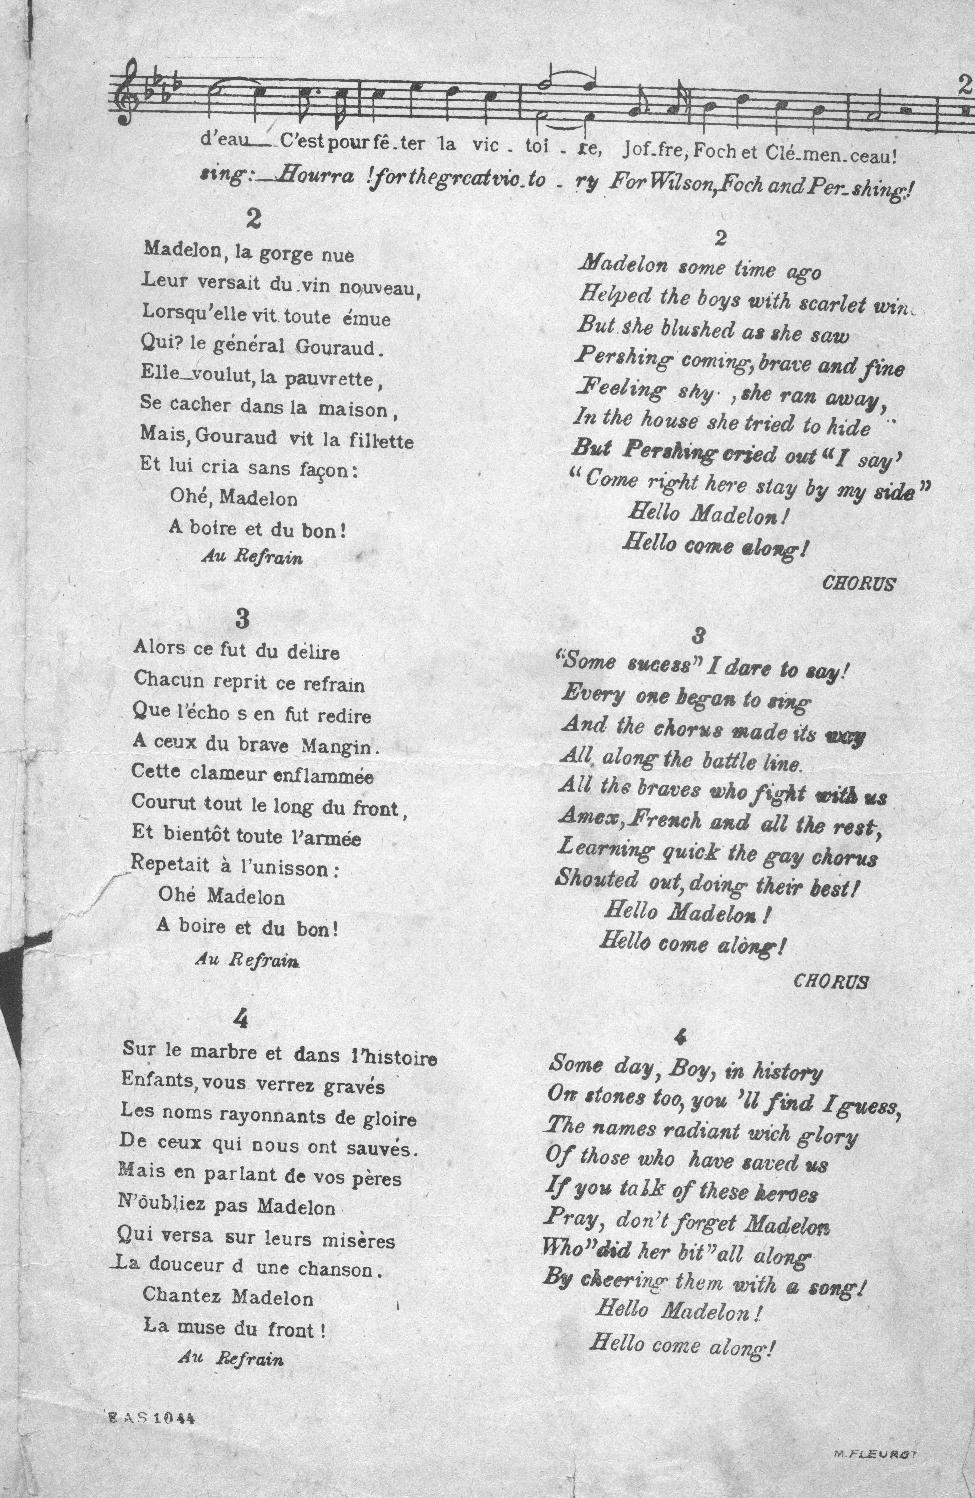 2
d'eau_ C'est pour fê-ter la vic-toi-re, Jof-fre, Foch et Clé-men-ceau!
sing:_Hourra !for the great vic-to-ry For Wilson, Foch and Per-shing!
2
Madelon, la gorge nue
Leur versait du vin nouveau,
Lorsqu'elle vit toute émue
Qui? le général Gouraud.
Elle voulut, la pauvrette,
Se cacher dans la maison,
Mais, Gouraud vit la fillette
Et lui cria sans façon:
Ohé, Madelon
A boire et du bon!
Au Refrain
3
Alors ce fut du délire
Chacun reprit ce refrain
Que l'écho s en fut redire
A ceux du brave Mangin.
Cette clameur enflammée
Courut tout le long du front,
Et bientôt toute l'armée
Repetait à l'unisson:
Ohé Madelon
A boire et du bon!
Au Refrain
4
Sur le marbre et dans l'histoire
Enfants, vous verrez gravés
Les noms rayonnants de gloire
De ceux qui nous ont sauvés.
Mais en parlant de vos pères
N'oubliez pas Madelon
Qui versa sur leurs misères
La douceur d une chanson.
Chantez Madelon
La muse du front!
Au Refrain
2
Madelon some time ago
Helped the boys with scarlet win
But she blushed as she saw
Pershing coming, brave and fine
Feeling shy ,she ran away,
In the house she tried to hide
But Pershing cried out "I say'
"Come right here stay by my side"
Hello Madelon!
Hello come along!
CHORUS
3
"Some sucess" I dare to say!
Every one began to sing
And the chorus made its way
All along the battle line.
All the braves who fight with us
Amex, French and all the rest,
Learning quick the gay chorus
Shouted out, doing their best!
Hello Madelon!
Hello come along!
CHORUS
4
Some day, Boy, in history
On stones too, you 'll find I guess,
The names radiant wich glory
Of those who have saved us
If you talk of these heroes
Pray, don't forget Madelon
Who "did her bit" all along
By cheering them with a song!
Hello Madelon!
Hello come along!
EAS 1044
M. FLEUROT